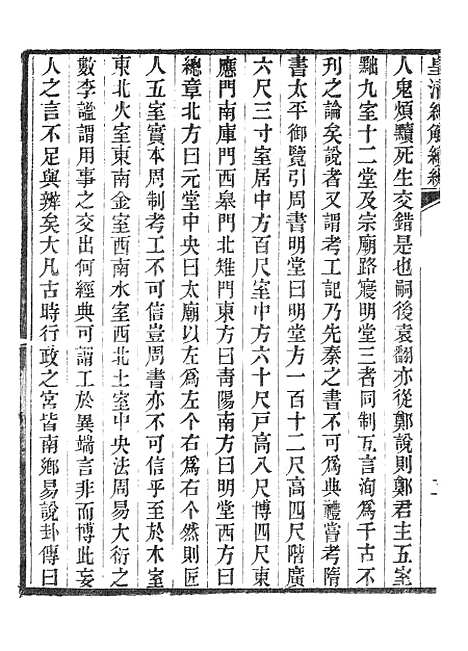 皇淸經解續編
人鬼煩黷死生交錯是也嗣後袁翻亦從鄭說則鄭君主五室
黜九室十二堂及宗廟路寢明堂三者同制互言洵爲千古不
刊之論矣說者又謂考工記乃先秦之書不可爲典禮嘗考隋
書太平御覽引周書明堂曰明堂方一百十二尺高四尺階廣
六尺三寸室居中方百尺室中方六十尺戸高八尺博四尺東
應門南庫門西皋門北雉門東方曰靑陽南方曰明堂西方曰
總章北方曰元堂中央曰太廟以左爲左个右爲右个然則匠
人五室實本周制考工不可信豈周書亦不可信乎至於木室
東北火室東南金室西南水室西北土室中央法周易大衍之
數李謐謂用事之交出何經典可謂工於異端言非而博此妄
人之言不足與辨矣大凡古時行政之宮皆南鄉易說卦傳曰